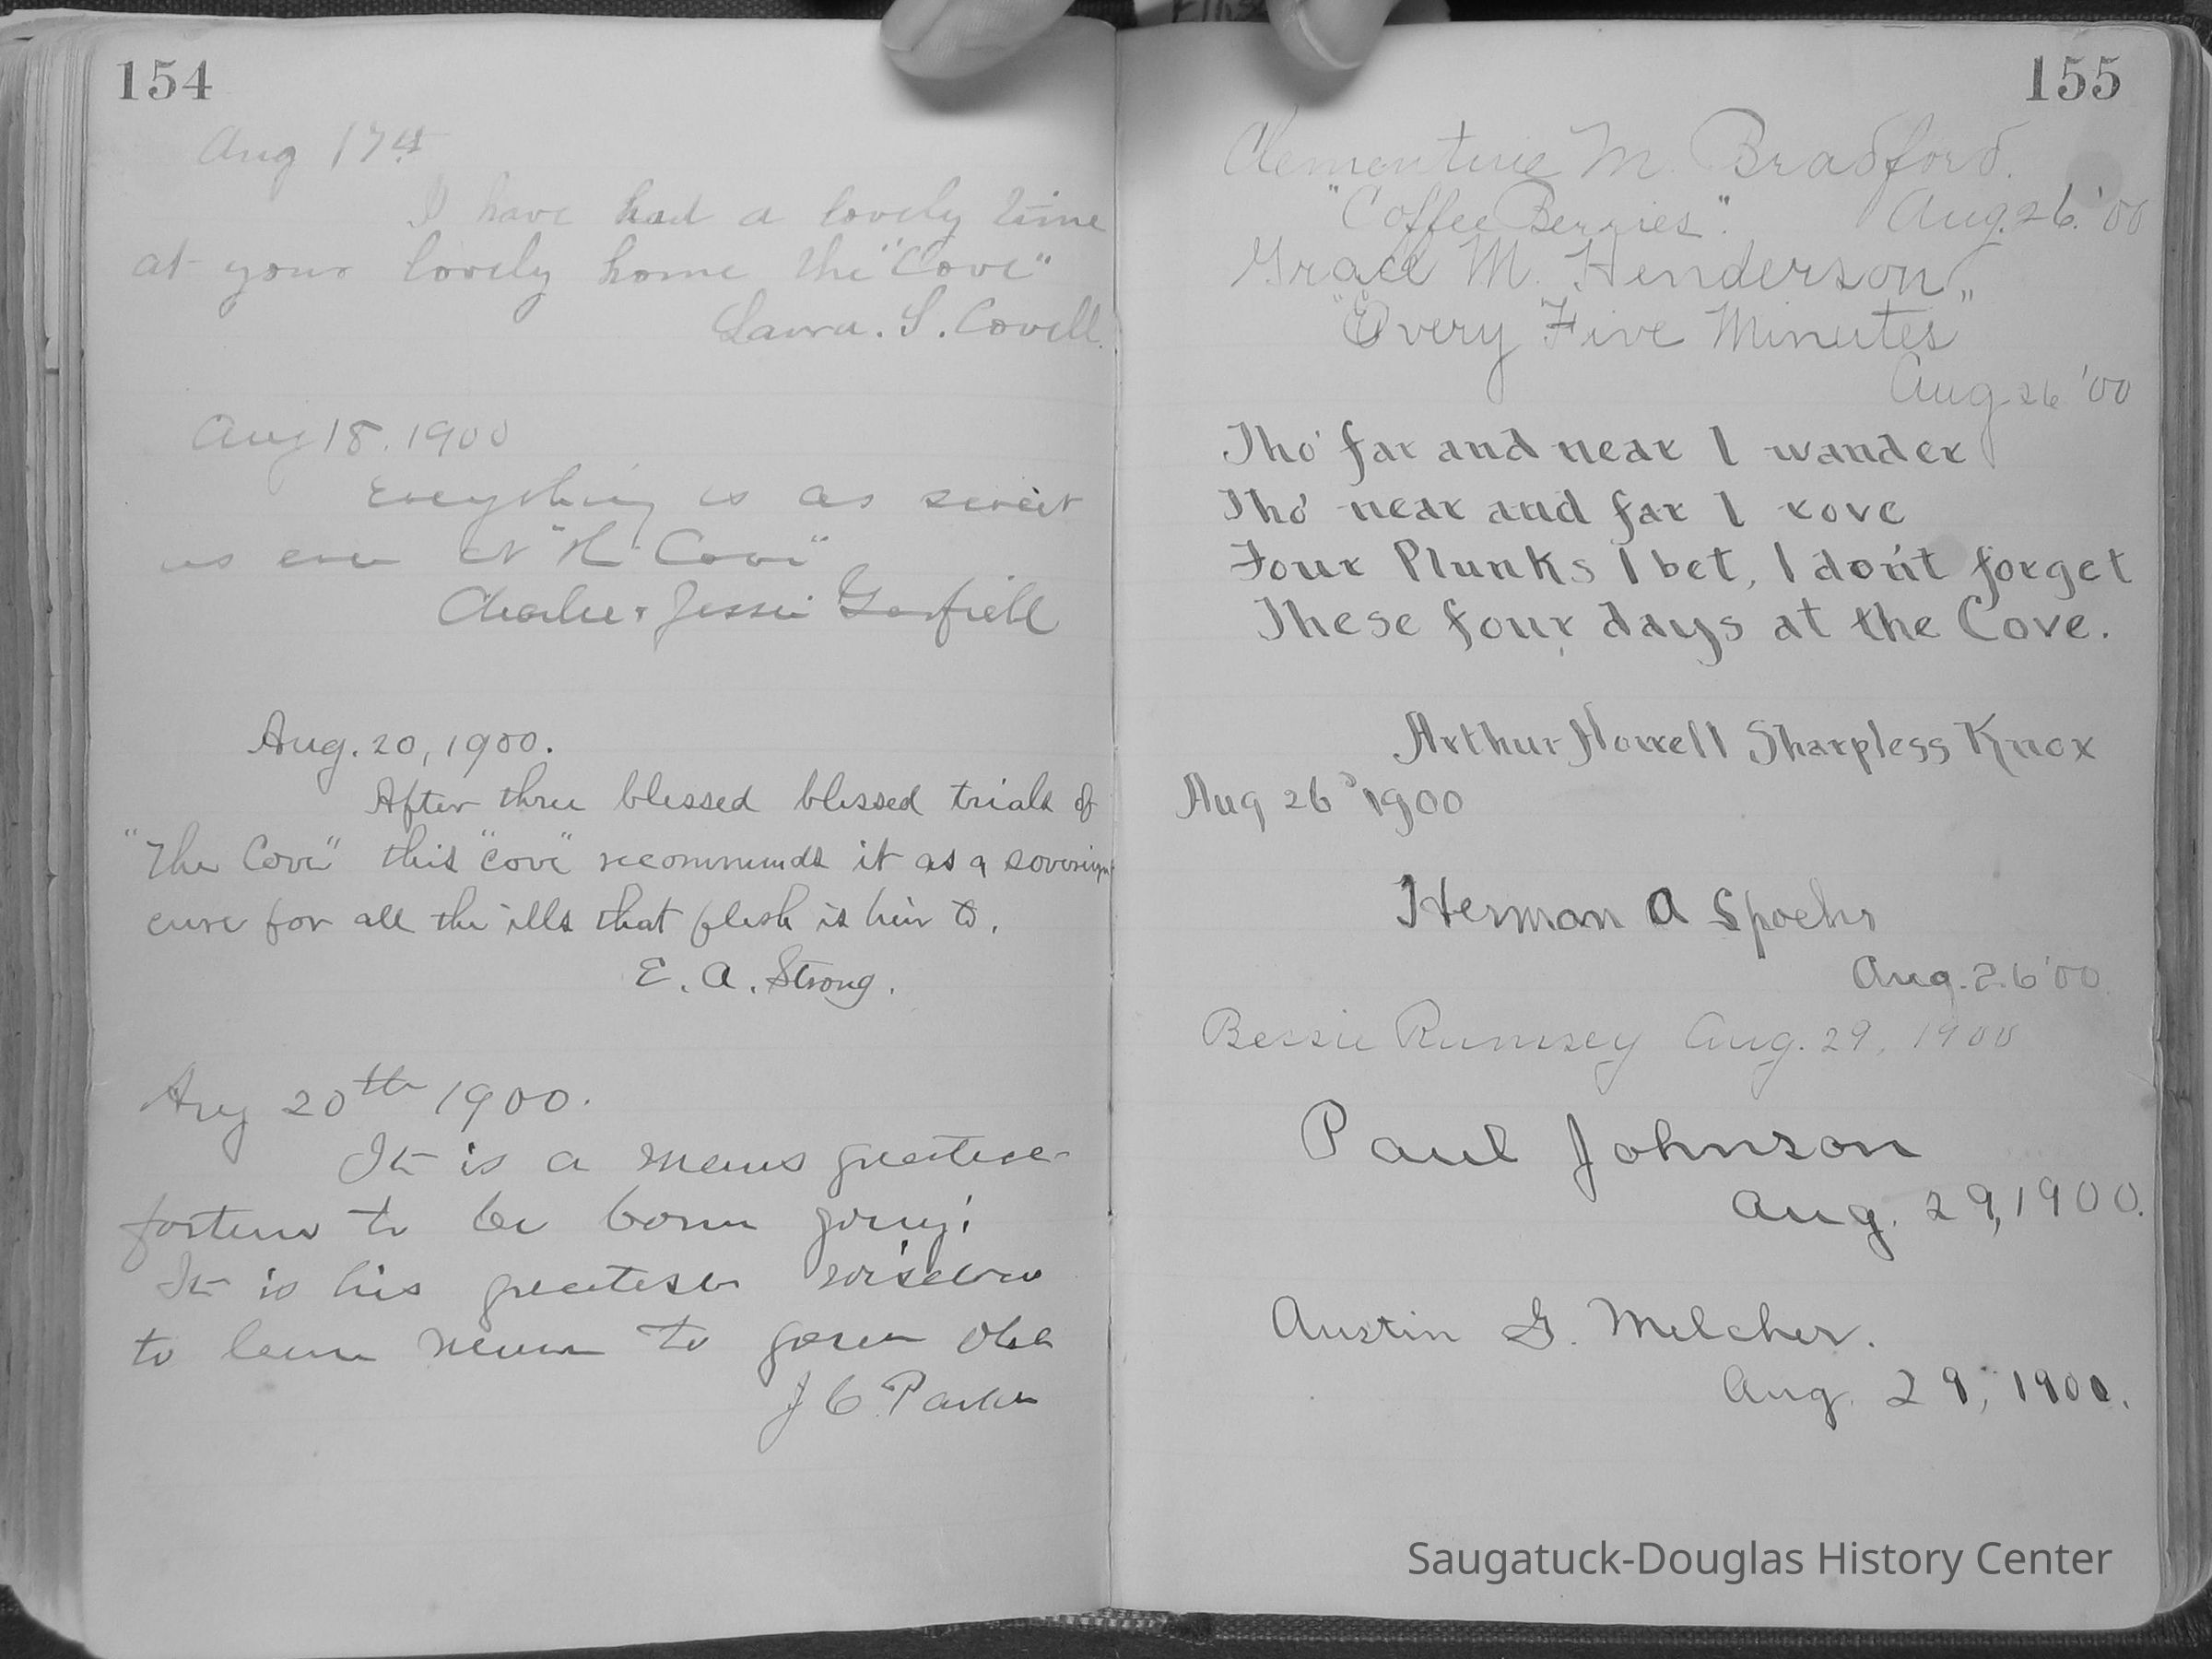 154
Aug 17th
I have had a lovely time
at your lovely home the "Cove"
Laura. S. Covell.
Aug 18. 1900
Everything is as sweet
as ever at "Th Cove"
Charlie & Jessie Garfield
Aug. 20, 1900.
After three blessed blessed trials of
"The Cove" this "cove" recommends it as a sovereign
cure for all the ills that flesh is heir to.
E. A. Strong.
Aug 20th 1900.
It is a mans greatest
fortune to be born young;
It is his greatest wisdom
to learn never to grow old
J C Parker
155
Clementine M. Bradford.
"Coffee Berries". Aug. 26. '00
Grace M. Henderson
"Every Five Minutes"
Aug 26 '00
Tho' far and near I wander
Tho' near and far I rove
Four Plunks I bet, I don't forget
These four days at the Cove.
Arthur Norrell Sharpless Knox
Aug 26 1900
Herman A Spoehr
Aug. 26 '00
Bessie Rumsey Aug. 29, 1900
Paul Johnson
Aug. 29, 1900.
Austin G. Melcher.
Aug. 29, 1900.
Saugatuck-Douglas History Center